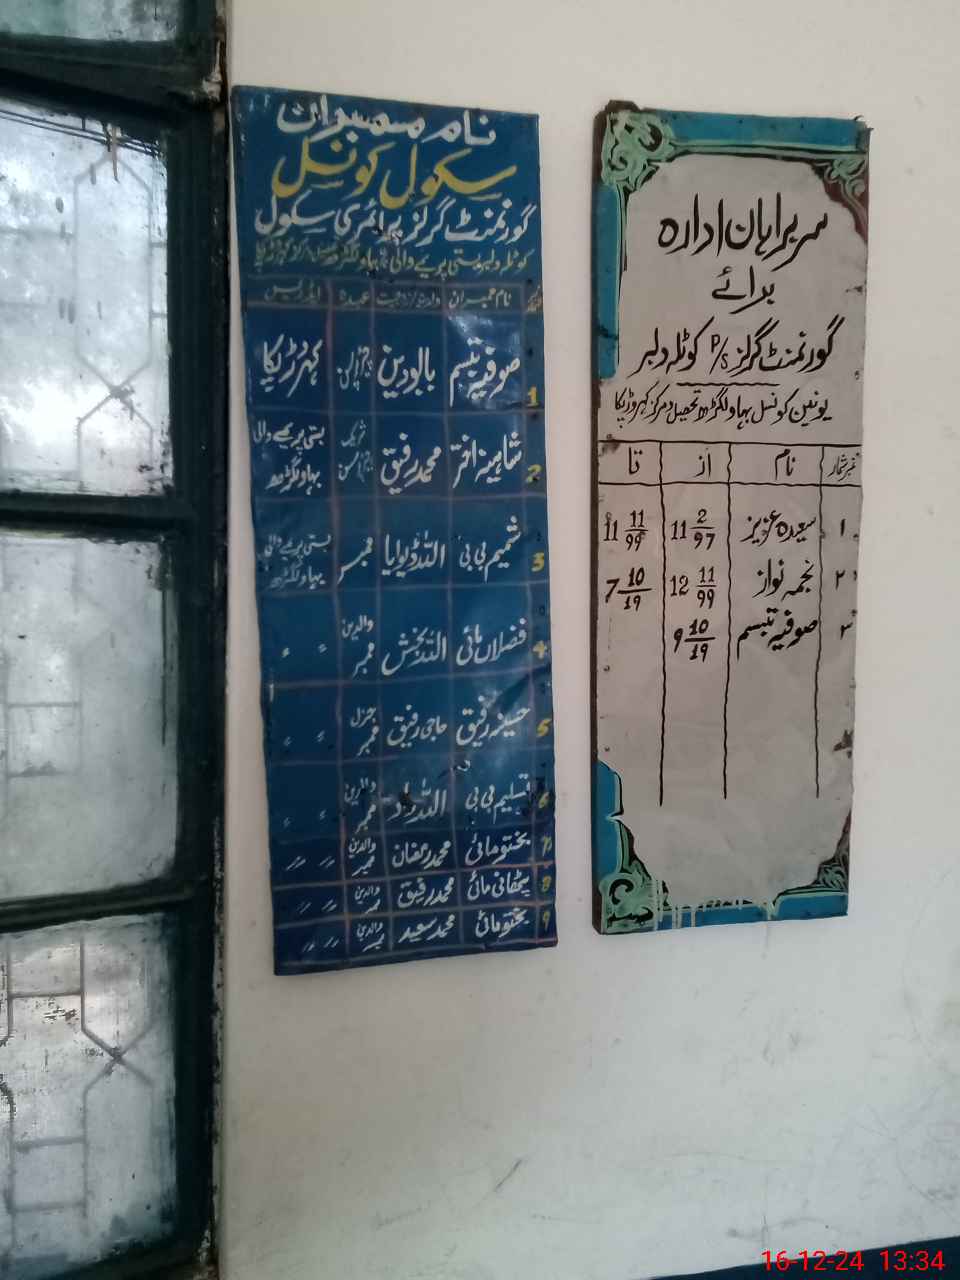 نام ممبران
سکول کونسل
گورنمنٹ گرلز پرائمری سکول
کوٹلہ دلبر بستی پریمے والی بہاولگڑھ
نام ممبران ولدیت/زوجیت عہدہ ایڈریس
1 صوفیہ تبسم بالودین کہروڑپکا
2 شاہینہ اختر محمد رفیق شریک بستی پریمے والی بہاولگڑھ
3 شمیم بی بی اللہ ڈیوایا ممبر بستی پریمے والی بہاولگڑھ
4 فضلاں مائی اللہ بخش والدین ممبر " "
5 حسینہ رفیق حاجی رفیق جنرل ممبر " "
6 تسلیم بی بی اللہ داد والدین ممبر " "
7 بختو مائی محمد رمضان والدین ممبر " "
8 پٹھانی مائی محمد رفیق والدین ممبر " "
9 بختو مائی محمد سعید والدین ممبر " "
سربراہان ادارہ
برائے
گورنمنٹ گرلز P/S کوٹلہ دلبر
یونین کونسل بہاولگڑھ تحصیل و مرکز کہروڑپکا
نمبر شمار نام از تا
۱ سعیدہ عزیز 11 2/97 11 11/99
۲ نجمہ نواز 12 11/99 7 10/19
۳ صوفیہ تبسم 9 10/19
16-12-24 13:34